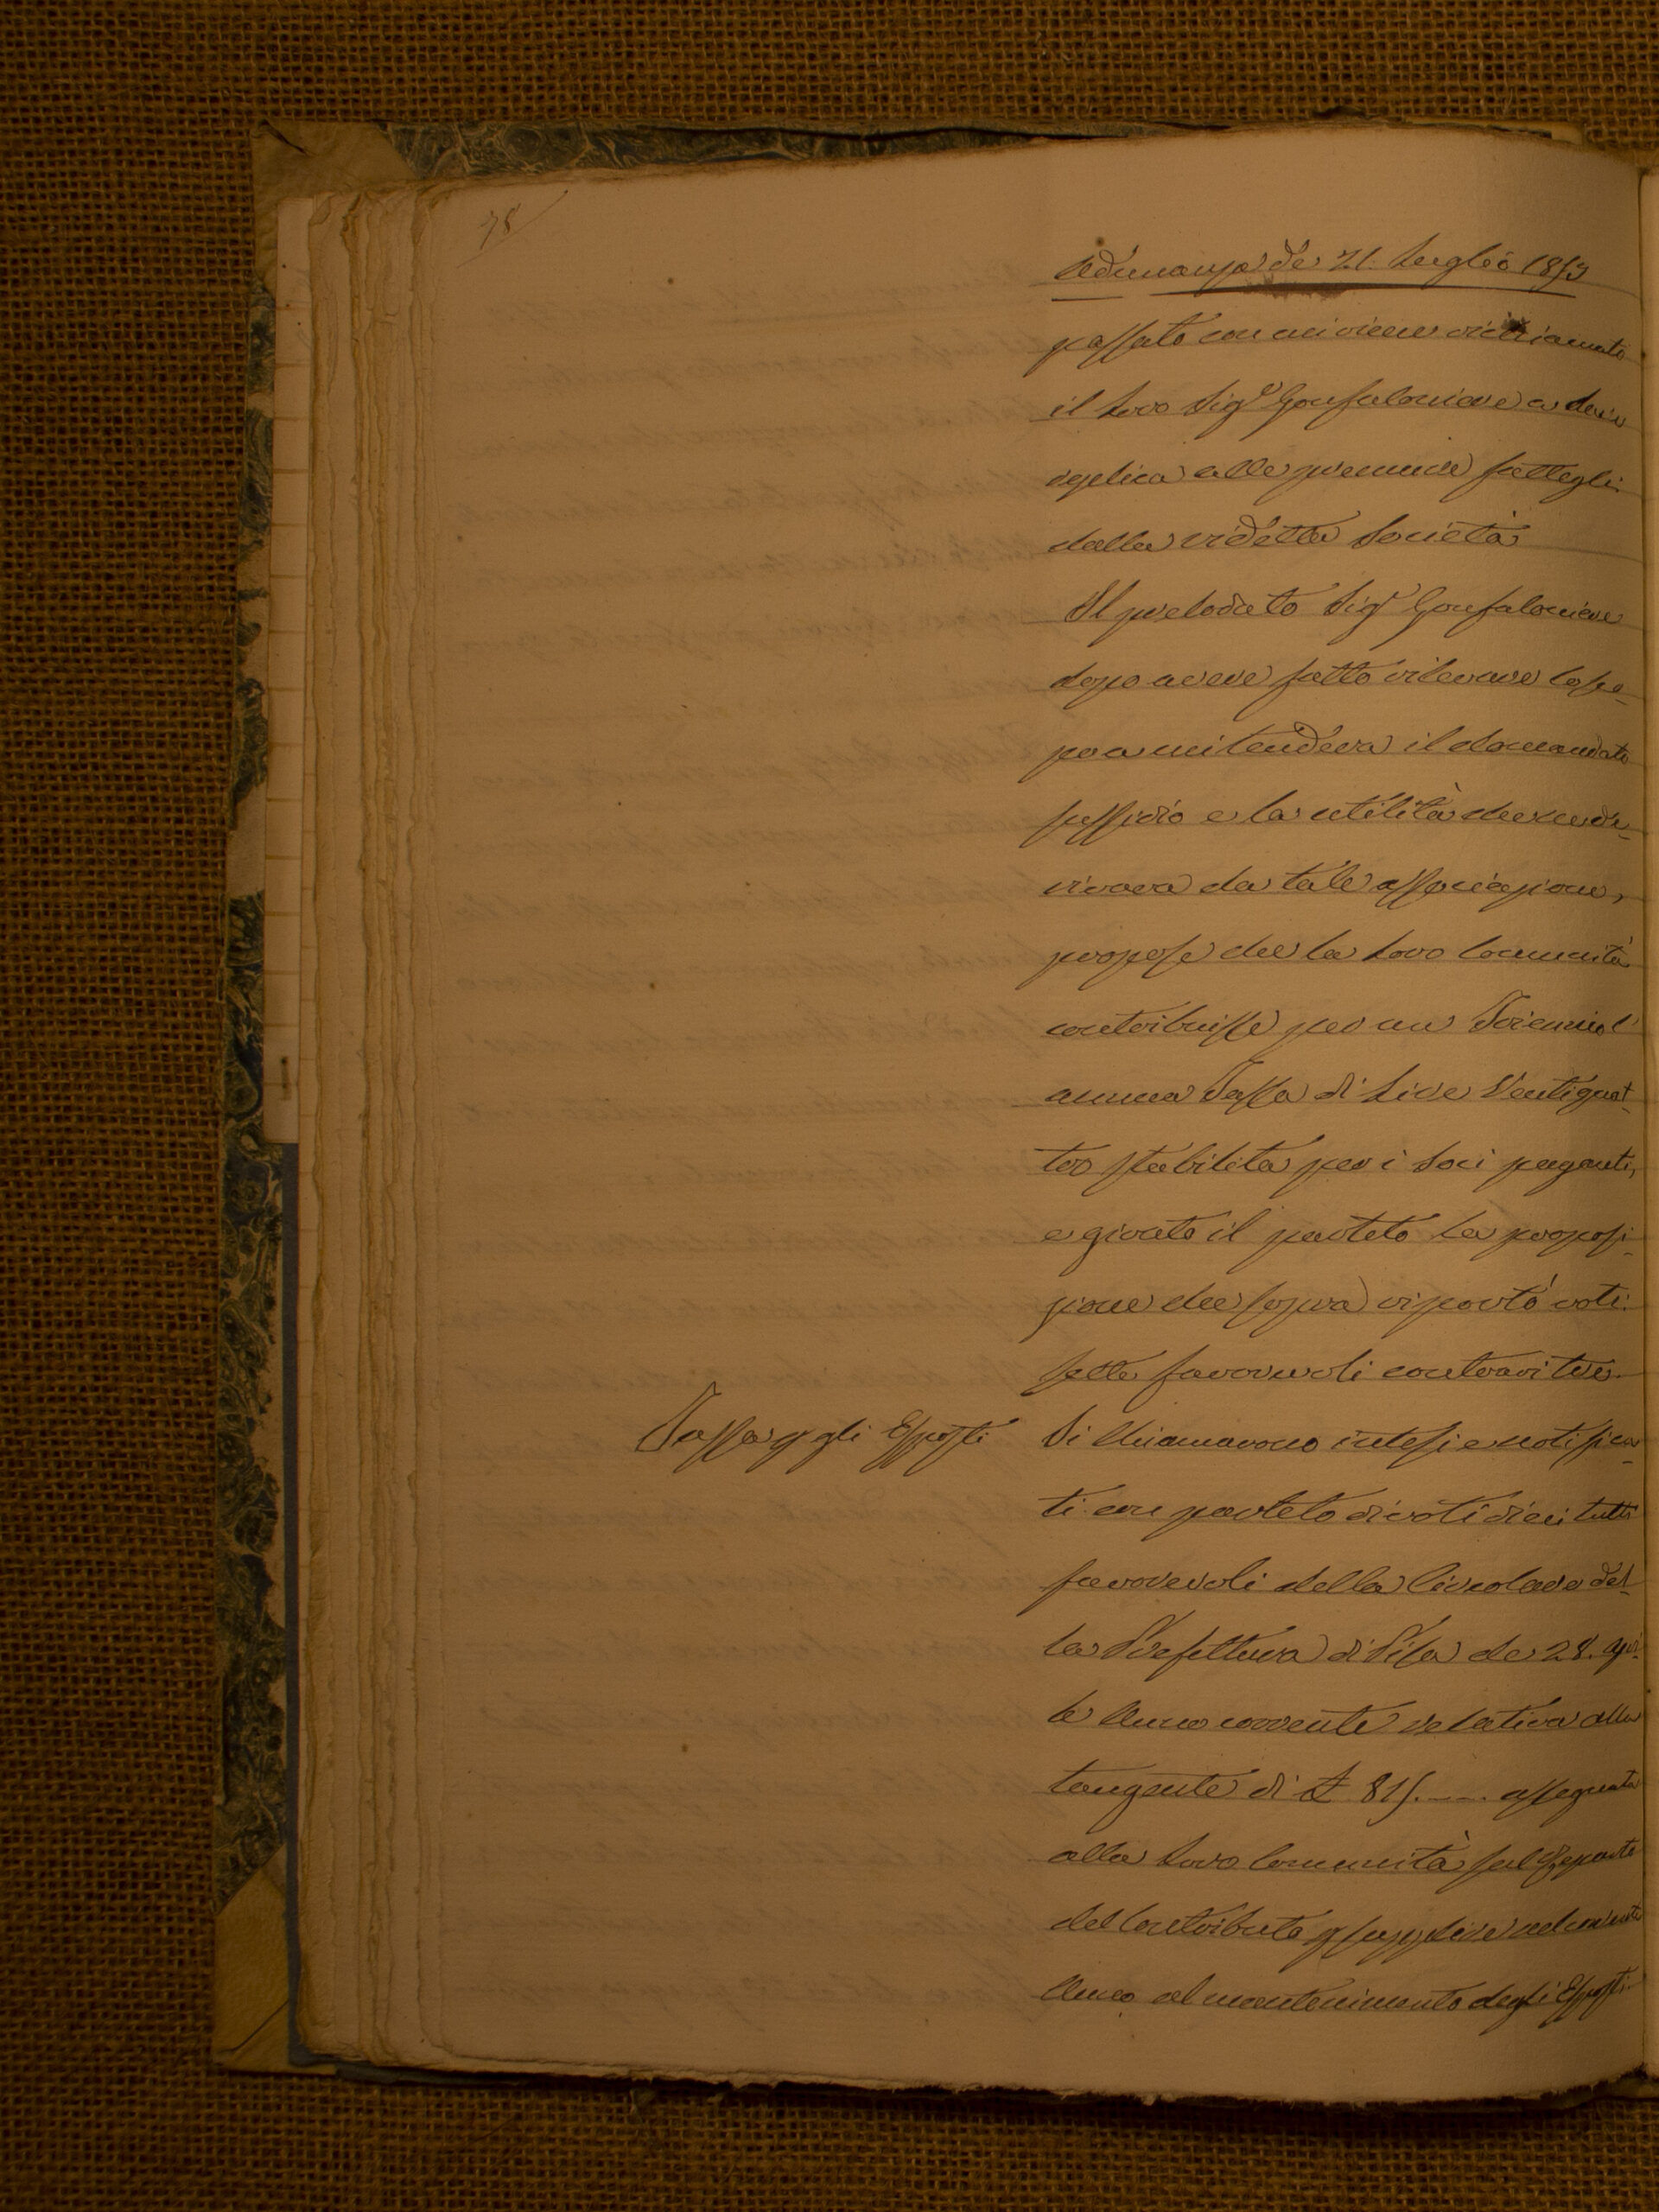 78
Adunanza de 21. Luglio 1853
passato con cui viene richiamato
il Loro Sigr Gonfaloniere a dare
replica alle premure fattegli
dalla ridetta Società
Il prelodato Sigr Gonfaloniere
dopo avere fatto rilevare lo sco-
po a cui tendeva il domandato
sussidio e la utilità che ne de-
rivava da tale associazione,
propose che la Loro Comunità
contribuisse per un Triennio l'
annua Tassa di Lire Ventiquat-
tro stabilita per i Soci paganti,
e girato il partito la proposi-
zione che sopra riportò voti
sette favorevoli contrari tre.
Tassa p gli Esposti
Si chiamarono intesi e notifica-
ti con partito di voti dieci tutti
favorevoli della Circolare del-
la Prefettura di Pisa de 28. Apri-
le Anno corrente relativa alla
tangente di £ 815.___. assegnata
alla Loro Comunità sul Reparto
del Contributo p supplire nel
Anno al mantenimento degli Esposti.